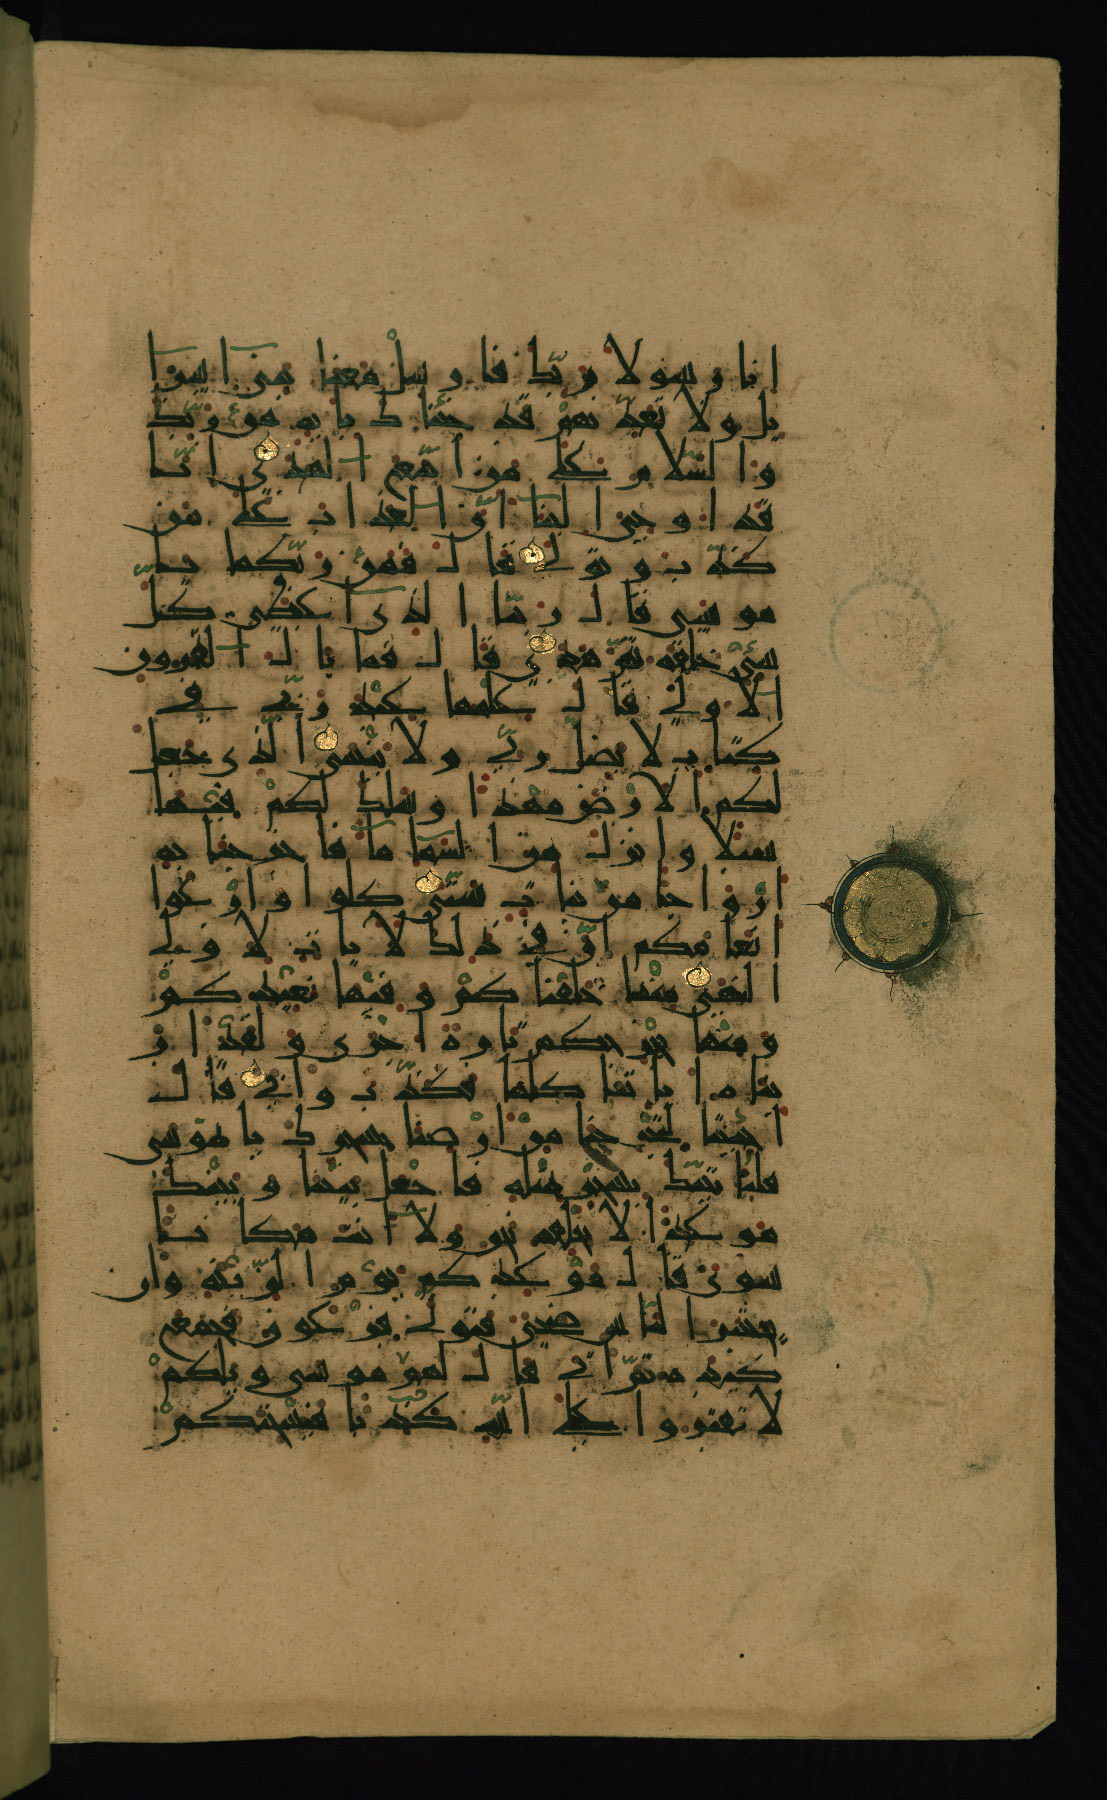 انا رسولا ربك فارسل معنا بنى اسرا
يل ولا تعذبهم قد جئناك باية من ربك
والسلام على من اتبع الهدى انا
قد اوحى الينا ان العذاب على من
كذب وتولى قال فمن ربكما يا
موسى قال ربنا الذى اعطى كل
شىء خلقه ثم هدى قال فما بال القرون
الاولى قال علمها عند ربى فى
كتاب لا يضل ربى ولا ينسى الذى جعل
لكم الارض مهدا وسلك لكم فيها
سبلا وانزل من السما ما فاخرجنا به
ازواجا من نبات شتى كلوا وارعوا
انعامكم ان فى ذلك لايات لاولى
النهى منها خلقناكم وفيها نعيدكم
ومنها نخرجكم تارة اخرى ولقد ار
يناه اياتنا كلها فكذب وابى قال
اجئتنا لتخرجنا من ارضنا بسحرك يا موسى
فلناتينك بسحر مثله فاجعل بيننا وبينك
موعدا لا نخلفه نحن ولا انت مكانا
سوى قال موعدكم يوم الزينة وان
يحشر الناس ضحى فتولى فرعون فجمع
كيده ثم اتى قال لهم موسى ويلكم
لا تفتروا على الله كذبا فيسحتكم